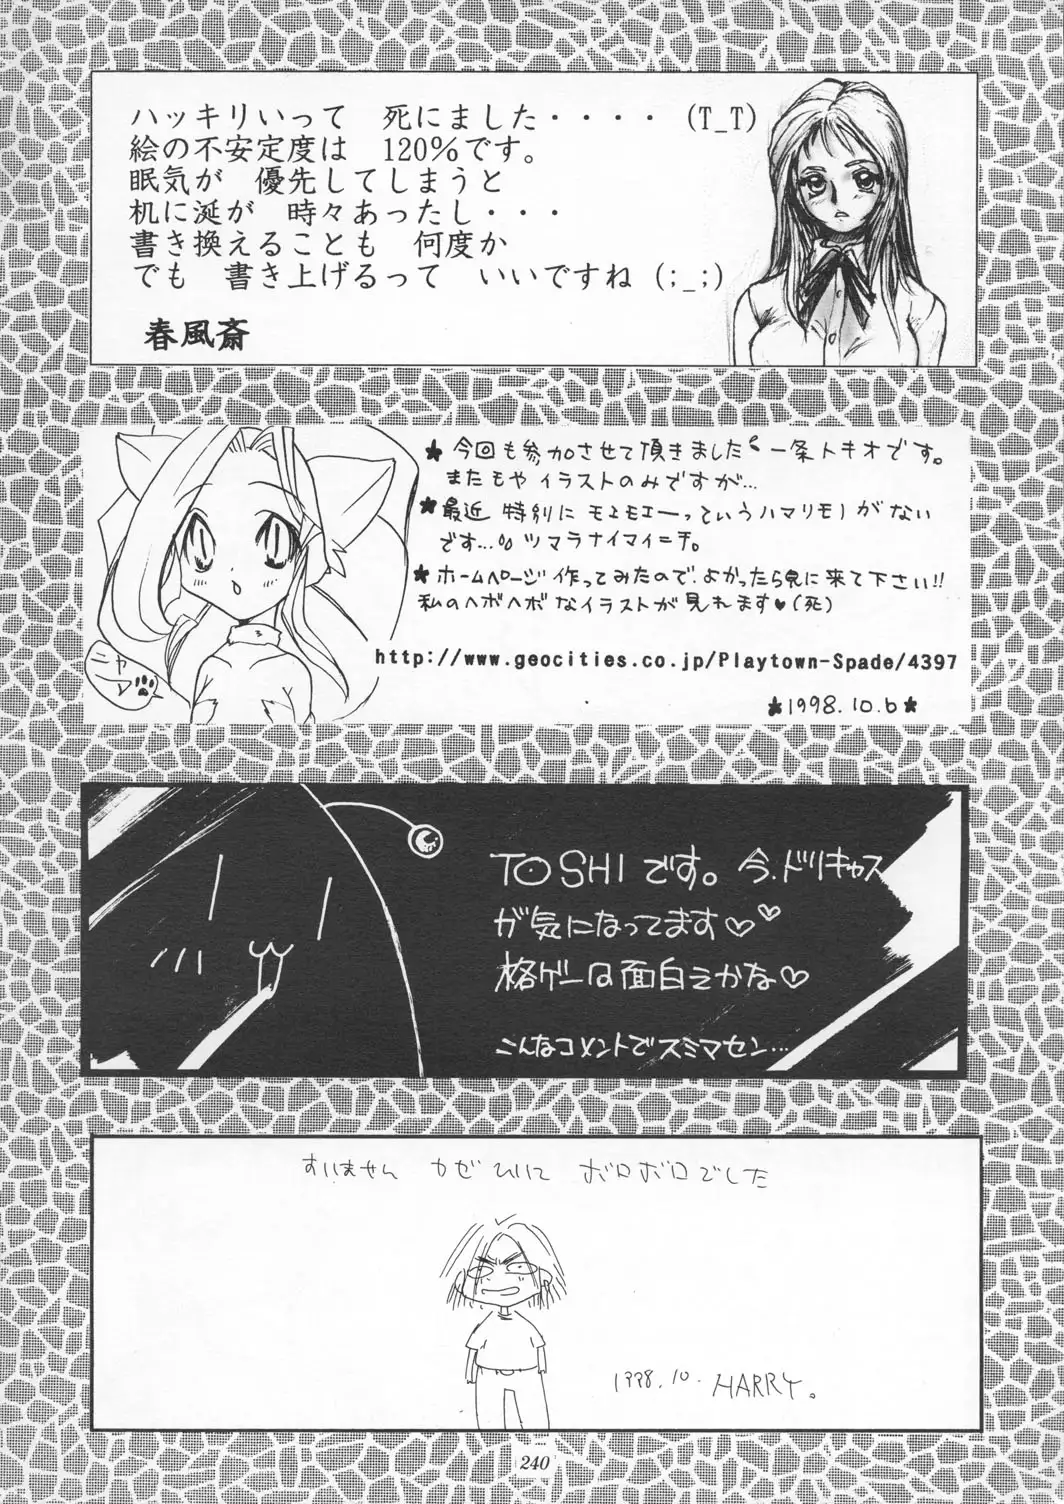 ハッキリいって　死にました・・・・　(T_T)
絵の不安定度は　120%です。
眠気が　優先してしまうと
机に涎が　時々あったし・・・
書き換えることも　何度か
でも　書き上げるって　いいですね (;_;)
春風斎
★ 今回も参加させて頂きました 一条トキオです。
またもや イラストのみですが…
★ 最近 特別に モエモエーっていうハマリモノがない
です… ツマラナイマイニチ。
★ ホームページ作ってみたので、よかったら見に来て下さい!!
私のヘボヘボなイラストが見れます♥(死)
ニャー
http://www.geocities.co.jp/Playtown-Spade/4397
★1998.10.6★
TOSHIです。今、ドリキャス
が気になってます♡♡
格ゲーは面白そかな♡
こんなコメントでスミマセン…
すいません カゼひいて ボロボロでした
1998.10. HARRY。
240